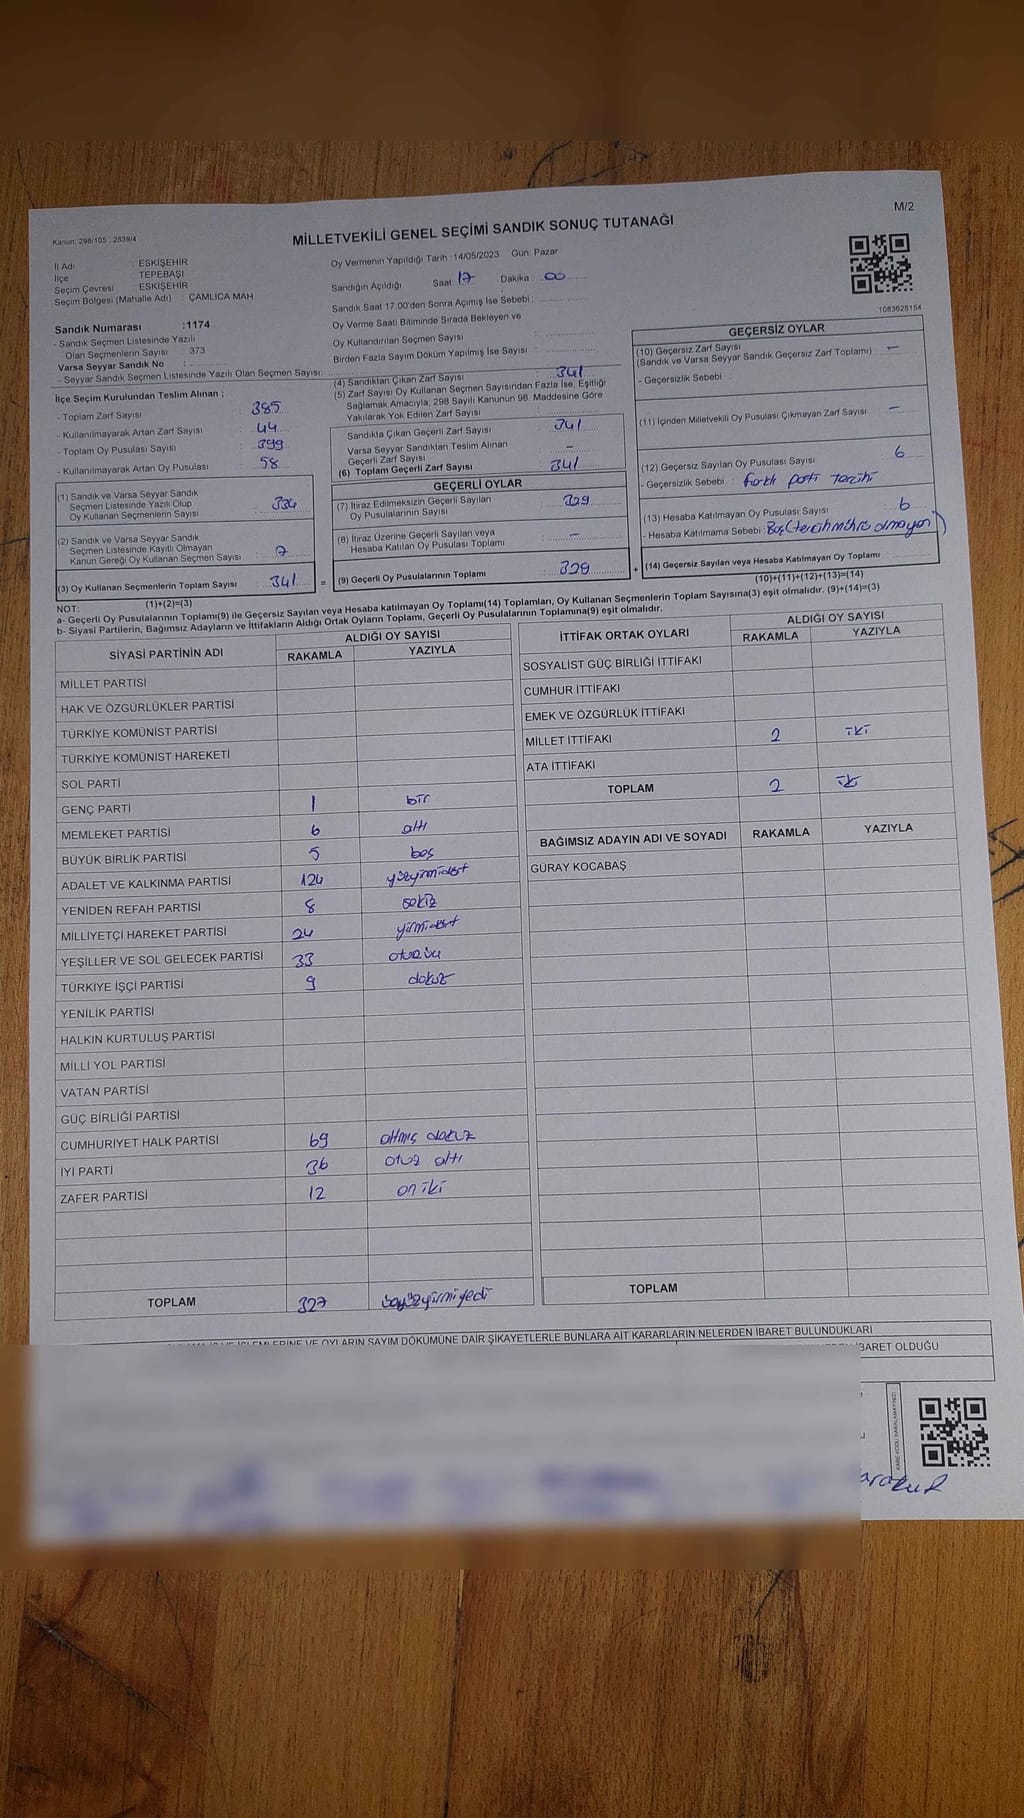 M/2
Kanun: 298/105 . 2839/4
MİLLETVEKİLİ GENEL SEÇİMİ SANDIK SONUÇ TUTANAĞI
İl Adı : ESKİŞEHİR
İlçe : TEPEBAŞI
Seçim Çevresi : ESKİŞEHİR
Seçim Bölgesi (Mahalle Adı) : ÇAMLICA MAH.
Oy Vermenin Yapıldığı Tarih : 14/05/2023 Gün: Pazar
Sandığın Açıldığı Saat: 17 Dakika : 00
Sandık Saat 17.00'den Sonra Açımış İse Sebebi :
Oy Verme Saati Bitiminde Sırada Bekleyen ve
Oy Kullandırılan Seçmen Sayısı :
Birden Fazla Sayım Döküm Yapılmış İse Sayısı :
1083628154
Sandık Numarası :1174
- Sandık Seçmen Listesinde Yazılı
Olan Seçmenlerin Sayısı : 373
Varsa Seyyar Sandık No :
- Seyyar Sandık Seçmen Listesinde Yazılı Olan Seçmen Sayısı:
İlçe Seçim Kurulundan Teslim Alınan ;
- Toplam Zarf Sayısı : 385
- Kullanılmayarak Artan Zarf Sayısı : 44
- Toplam Oy Pusulası Sayısı : 399
- Kullanılmayarak Artan Oy Pusulası : 58
(1) Sandık ve Varsa Seyyar Sandık
Seçmen Listesinde Yazılı Olup
Oy Kullanan Seçmenlerin Sayısı : 334
(2) Sandık ve Varsa Seyyar Sandık
Seçmen Listesinde Kayıtlı Olmayan
Kanun Gereği Oy Kullanan Seçmen Sayısı : 7
(3) Oy Kullanan Seçmenlerin Toplam Sayısı : 341 =
(1)+(2)=(3)
(4) Sandıktan Çıkan Zarf Sayısı : 341
(5) Zarf Sayısı Oy Kullanan Seçmen Sayısından Fazla İse, Eşitliği
Sağlamak Amacıyla; 298 Sayılı Kanunun 98. Maddesine Göre
Yakılarak Yok Edilen Zarf Sayısı :
Sandıkta Çıkan Geçerli Zarf Sayısı : 341
Varsa Seyyar Sandıktan Teslim Alınan
Geçerli Zarf Sayısı : -
(6) Toplam Geçerli Zarf Sayısı : 341
GEÇERLİ OYLAR
(7) İtiraz Edilmeksizin Geçerli Sayılan
Oy Pusulalarının Sayısı : 329
(8) İtiraz Üzerine Geçerli Sayılan veya
Hesaba Katılan Oy Pusulası Toplamı : -
(9) Geçerli Oy Pusulalarının Toplamı : 329 +
GEÇERSİZ OYLAR
(10) Geçersiz Zarf Sayısı : -
(Sandık ve Varsa Seyyar Sandık Geçersiz Zarf Toplamı)
- Geçersizlik Sebebi :
(11) İçinden Milletvekili Oy Pusulası Çıkmayan Zarf Sayısı : -
(12) Geçersiz Sayılan Oy Pusulası Sayısı : 6
- Geçersizlik Sebebi : farklı parti tercihi
(13) Hesaba Katılmayan Oy Pusulası Sayısı : 6
- Hesaba Katılmama Sebebi : Boş(tercih mührü olmayan)
(14) Geçersiz Sayılan veya Hesaba Katılmayan Oy Toplamı
(10)+(11)+(12)+(13)=(14)
NOT:
a- Geçerli Oy Pusulalarının Toplamı(9) ile Geçersiz Sayılan veya Hesaba katılmayan Oy Toplamı(14) Toplamları, Oy Kullanan Seçmenlerin Toplam Sayısına(3) eşit olmalıdır. (9)+(14)=(3)
b- Siyasi Partilerin, Bağımsız Adayların ve İttifakların Aldığı Ortak Oyların Toplamı, Geçerli Oy Pusulalarının Toplamına(9) eşit olmalıdır.
SİYASİ PARTİNİN ADI ALDIĞI OY SAYISI
RAKAMLA YAZIYLA
MİLLET PARTİSİ
HAK VE ÖZGÜRLÜKLER PARTİSİ
TÜRKİYE KOMÜNİST PARTİSİ
TÜRKİYE KOMÜNİST HAREKETİ
SOL PARTİ
GENÇ PARTİ 1 bir
MEMLEKET PARTİSİ 6 altı
BÜYÜK BİRLİK PARTİSİ 5 beş
ADALET VE KALKINMA PARTİSİ 124 yüzyirmidört
YENİDEN REFAH PARTİSİ 8 sekiz
MİLLİYETÇİ HAREKET PARTİSİ 24 yirmidört
YEŞİLLER VE SOL GELECEK PARTİSİ 33 otuzüç
TÜRKİYE İŞÇİ PARTİSİ 9 dokuz
YENİLİK PARTİSİ
HALKIN KURTULUŞ PARTİSİ
MİLLİ YOL PARTİSİ
VATAN PARTİSİ
GÜÇ BİRLİĞİ PARTİSİ
CUMHURİYET HALK PARTİSİ 69 altmış dokuz
İYİ PARTİ 36 otuz altı
ZAFER PARTİSİ 12 on iki
TOPLAM 327 üçyüzyirmiyedi
İTTİFAK ORTAK OYLARI ALDIĞI OY SAYISI
RAKAMLA YAZIYLA
SOSYALİST GÜÇ BİRLİĞİ İTTİFAKI
CUMHUR İTTİFAKI
EMEK VE ÖZGÜRLÜK İTTİFAKI
MİLLET İTTİFAKI 2 iki
ATA İTTİFAKI
TOPLAM 2 iki
BAĞIMSIZ ADAYIN ADI VE SOYADI RAKAMLA YAZIYLA
GÜRAY KOCABAŞ
TOPLAM
VE OYLARIN SAYIM DÖKÜMÜNE DAİR ŞİKAYETLERLE BUNLARA AİT KARARLARIN NELERDEN İBARET BULUNDUKLARI
İBARET OLDUĞU